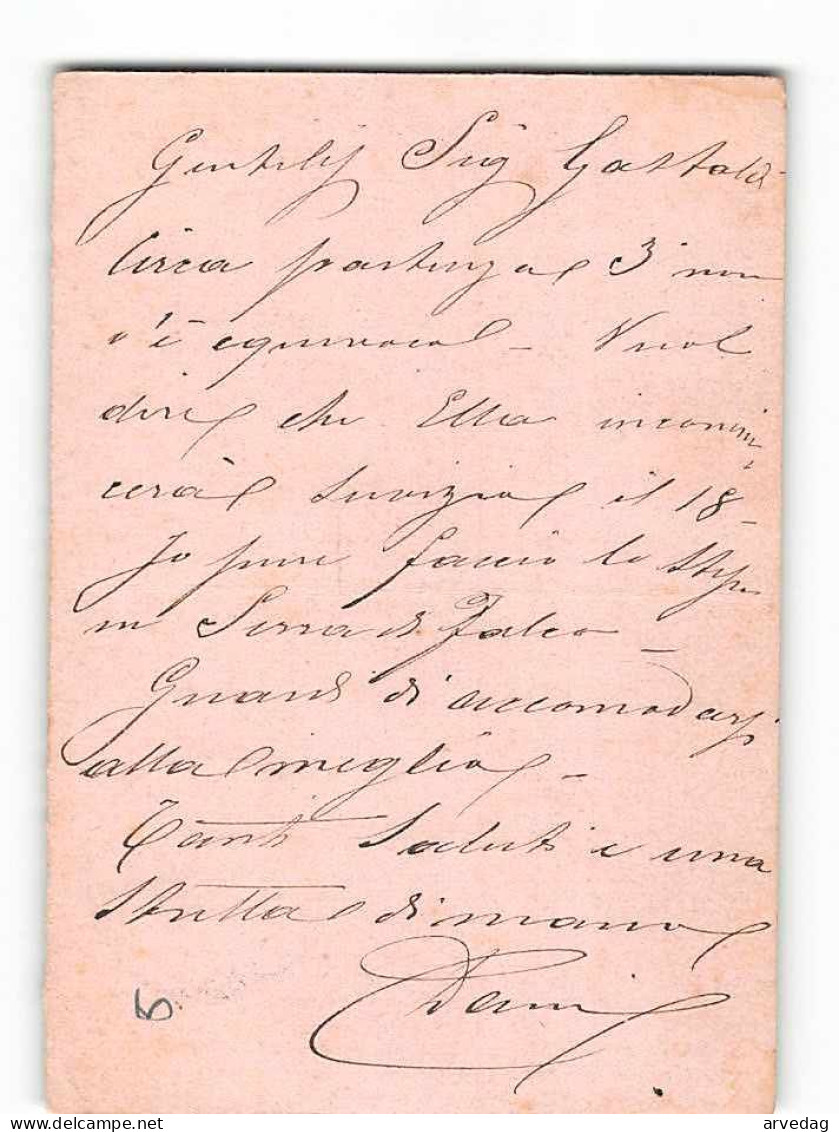 Gentiliss Sig Gastaldi
Circa partenza 3 non
c'è equivoco – Vuol
dire che Ella incomin
cerà servizio il 18 –
Io pure faccio lo stesso
in Serra di Falco –
Guardi di accomodarsi
alla meglio –
Tanti Saluti e una
stretta di mano

6
delcampe.net
arvedag